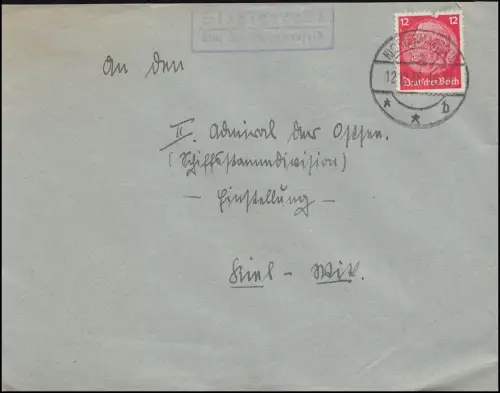 12 12
Deutsches Reich
12
b
An den
II. Admiral der Ostsee.
(Schiffsstammdivision)
- Einstellung -
Kiel - Wik.